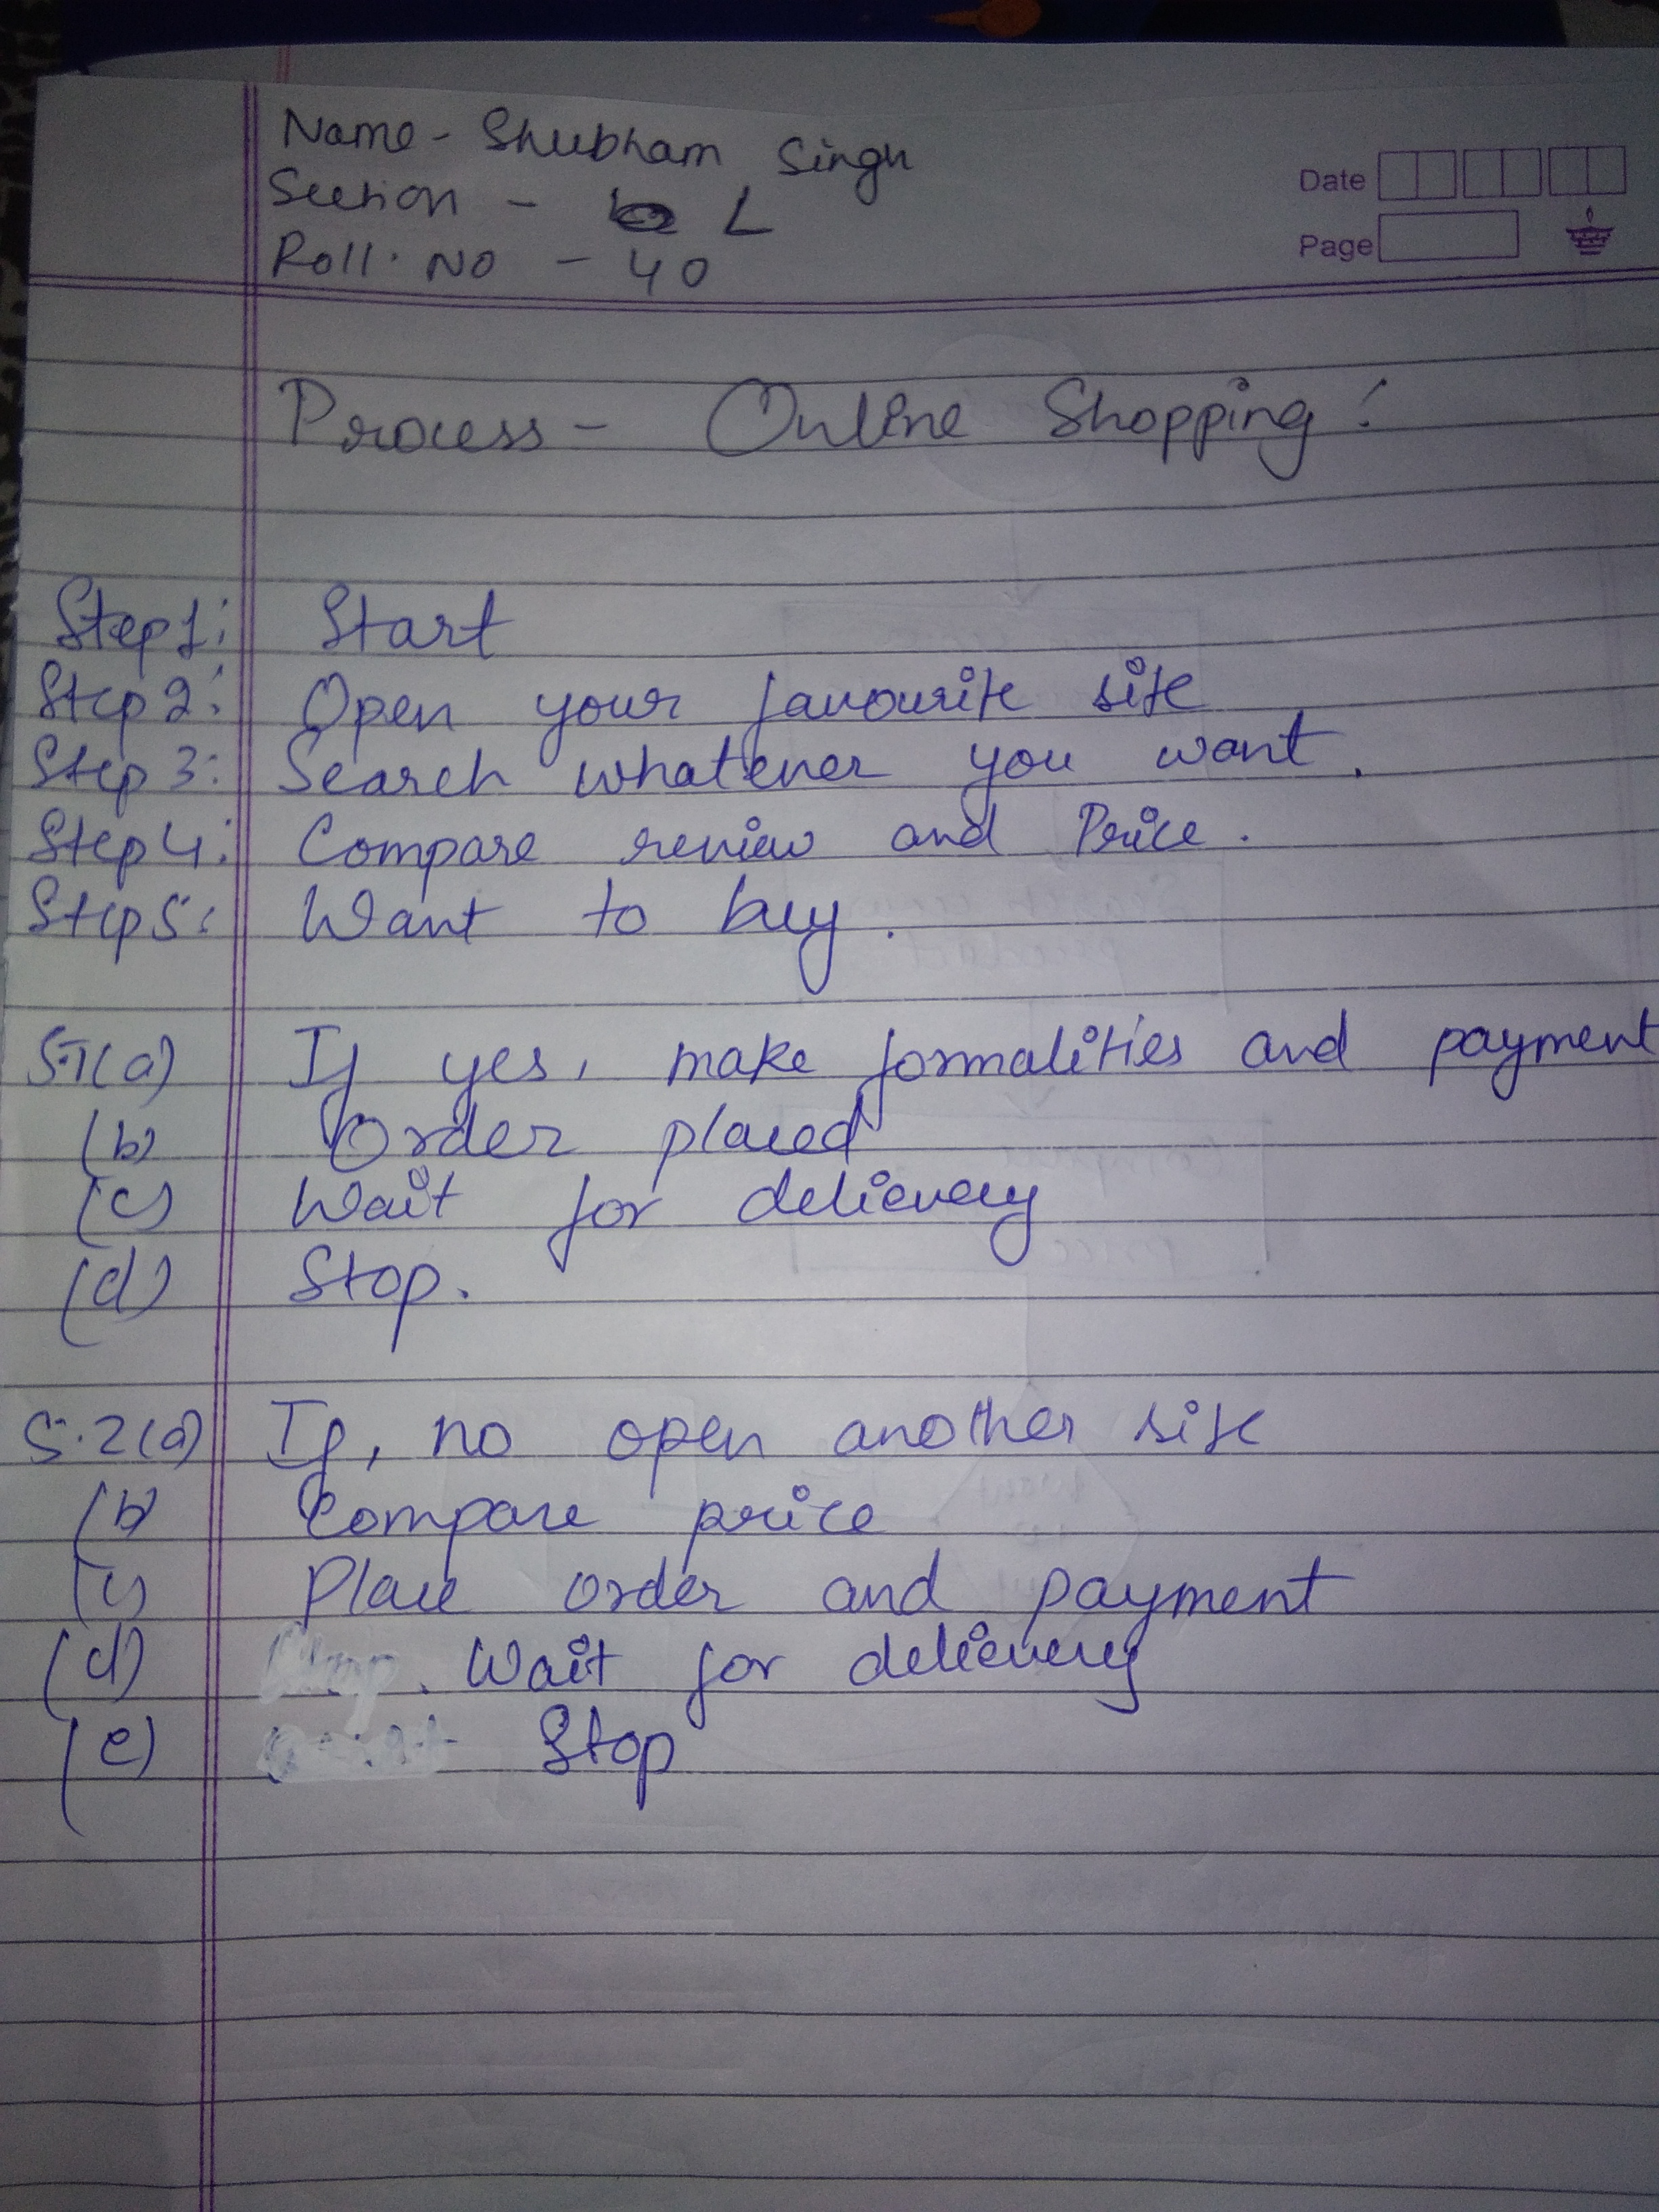 Name - Shubham Singh
Section - L
Roll. No - 40
Date
Page
Process - Online Shopping :
Step 1: Start
Step 2: Open your favourite site
Step 3: Search whatever you want.
Step 4: Compare review and Price.
Step 5: Want to buy.
5.1(a) If yes, make formalities and payment
(b) Order placed
(c) Wait for delievery
(d) Stop.
5.2(a) If, no open another site
(b) Compare price
(c) Place order and payment
(d) Wait for delievery
(e) Stop